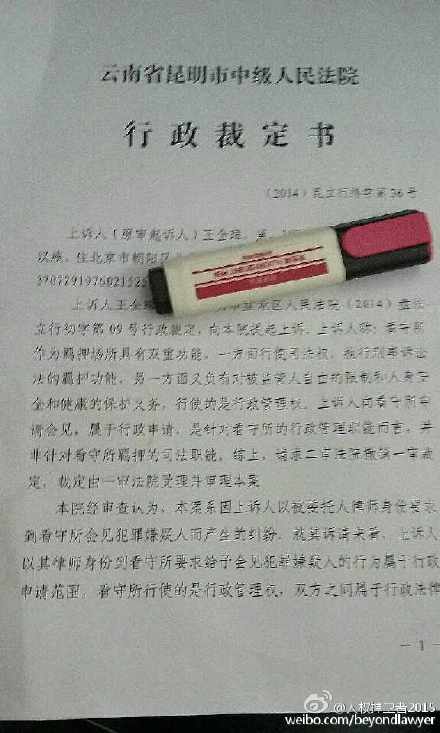 云南省昆明市中级人民法院
行政裁定书
(2014)昆立行终字第36号
上诉人(原审起诉人)王全璋,男,
住北京市朝阳区
上诉人王全璋 区人民法院(2014)盘法
立行初字第09号行政裁定,向本院提起上诉。上诉人称:看守所
作为羁押场所具有双重功能,一方面行使司法权,执行刑事诉讼
法的羁押功能,另一方面又负有对被监管人自由的限制和人身安
全和健康的保护义务,行使的是行政管理权。上诉人向看守所申
请会见,属于行政申请,是针对看守所的行政管理职能而言,并
非针对看守所羁押的司法职能。综上,请求二审法院撤销一审裁
定,裁定由一审法院受理并审理本案。
本院经审查认为,本案系因上诉人以被委托人律师身份要求
到看守所会见犯罪嫌疑人而产生的纠纷。就其诉请来看,上诉人
以其律师身份到看守所要求给予会见犯罪嫌疑人的行为属于行政
申请范围,看守所行使的是行政管理权,双方之间属于行政法律
- 1
@人权捍卫者2015
weibo.com/beyondlawyer